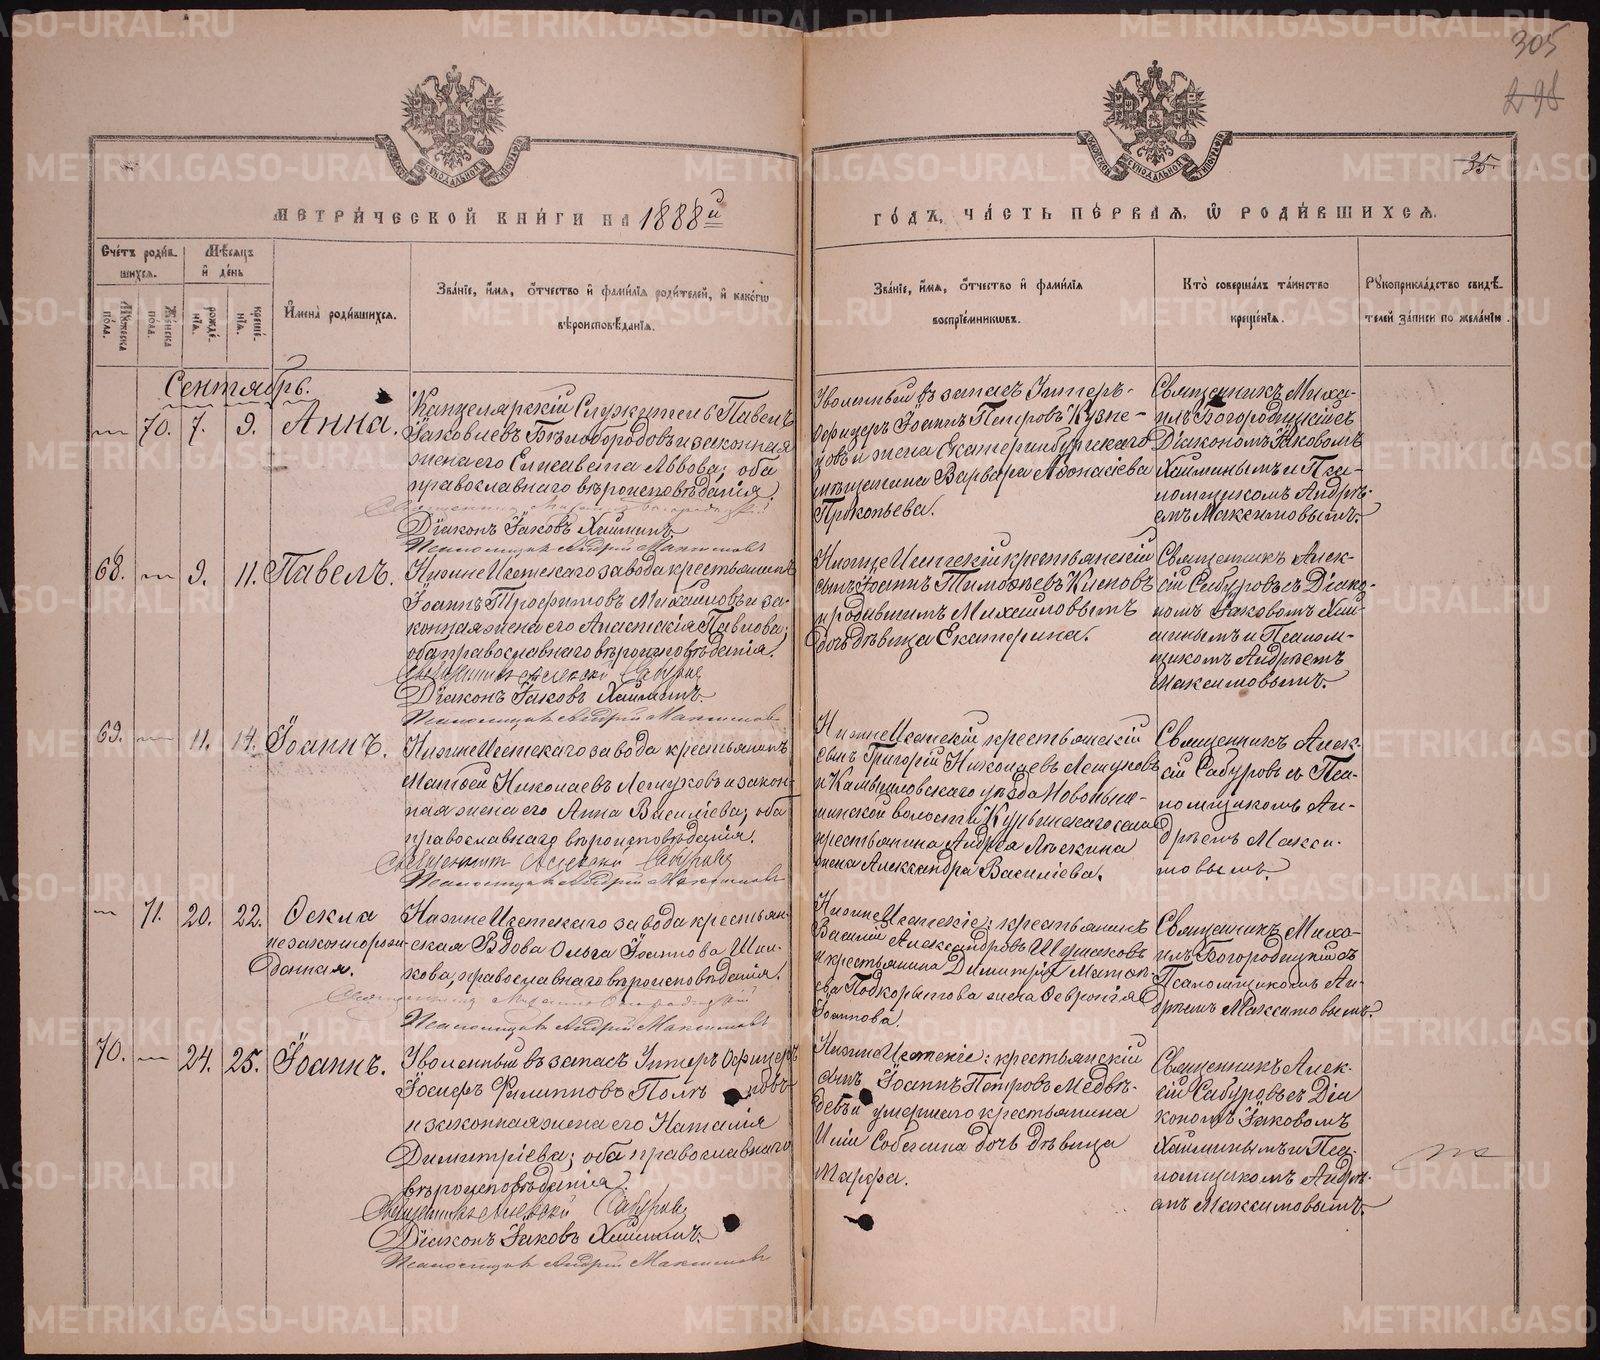 305
298
35
МЕТРИЧЕСКОЙ КНИГИ НА 1888й
ГОДЪ, ЧАСТЬ ПЕРВАЯ, Ѡ РОДИВШИХСЯ.
Счетъ родившихся.
Мужеска пола.
Женска пола.
Мѣсяцъ и день
рожденія.
крещенія.
Имена родившихся.
Званіе, имя, отчество и фамилія родителей, и какогѡ
вѣроисповѣданія.
Званіе, имя, отчество и фамилія
воспріемникѡвъ.
Кто совершалъ таинство
крещенія.
Рукоприкладство свидѣ-
телей записи по желанію.
Сентябрь.
70. 7. 9. Анна.
Канцелярскій Служитель Павелъ
Іаковлевъ Бѣлобородовъ и законная
жена его Елисавета Львова; оба
православнаго вѣроисповѣданія.
Діаконъ Іаковъ Хаминъ
Псаломщикъ Андрей Максимовъ
Уволенный въ запасъ Унтеръ-
Офицеръ Іоаннъ Петровъ Кузне-
цовъ и жена Екатеринбургскаго
мѣщанина Варвара Афонасіева
Прокопьева.
Священникъ Миха-
илъ Богородицкій съ
Діакономъ Іаковомъ
Хаминымъ и Пса-
ломщикомъ Андрѣ-
емъ Максимовымъ.
68. 9. 11. Павелъ.
Нижне Исетскаго завода крестьянинъ
Іоаннъ Трофимовъ Михайловъ и за-
конная жена его Анастасія Павлова;
оба православнаго вѣроисповѣданія.
Священникъ Алексій Сабуровъ
Діаконъ Іаковъ Хаминъ.
Псаломщикъ Андрей Максимовъ
Нижне Исетскій крестьянскій
сынъ Іоаннъ Тимофѣевъ
и родившимъ Михайловымъ
дочь дѣвица Екатерина.
Священникъ Алек-
сій Сабуровъ съ Діако-
номъ Іаковомъ Ха-
минымъ и Псалом-
щикомъ Андрѣемъ
Максимовымъ.
69. 11. 14. Іоаннъ.
Нижне Исетскаго завода крестьянинъ
Матѳей Николаевъ и закон-
ная жена его Анна Василіева; оба
православнаго вѣроисповѣданія.
Священникъ Алексій Сабуровъ
Псаломщикъ Андрей Максимовъ
Нижне Исетскій крестьянскій
сынъ Григорій Николаевъ
и Камышловскаго уѣзда Новопыш-
минской волости Курьинскаго села
крестьянина Андрея
жена Александра Василіева.
Священникъ Алек-
сій Сабуровъ съ Пса-
ломщикомъ Ан-
дрѣемъ Макси-
мовымъ.
71. 20. 22. Ѳекла
незаконнорож-
денная.
Нижне Исетскаго завода крестьян-
ская Вдова Ольга Іоаннова
православнаго вѣроисповѣданія.
Священникъ Михаилъ Богородицкій
Псаломщикъ Андрей Максимовъ
Нижне Исетскіе: крестьянинъ
Василій Александровъ
и крестьянина Димитрія Матѳе-
ева Подкорытова жена Февронія
Іоаннова.
Священникъ Миха-
илъ Богородицкій съ
Псаломщикомъ Ан-
дрѣемъ Максимовымъ.
70. 24. 25. Іоаннъ.
Уволенный въ запасъ Унтеръ Офицеръ
Іосифъ Филипповъ
и законная жена его Наталія
Димитріева; оба православнаго
вѣроисповѣданія.
Священникъ Алексій Сабуровъ
Діаконъ Іаковъ Хаминъ.
Псаломщикъ Андрей Максимовъ
Нижне Исетскіе: крестьянскій
сынъ Іоаннъ Петровъ Медвѣ-
девъ и умершаго крестьянина
дочь дѣвица
Марѳа.
Священникъ Алек-
сій Сабуровъ съ Діа
кономъ Іаковомъ
Хаминымъ и Пса-
ломщикомъ Андрѣ-
емъ Максимовымъ.
METRIKI.GASO-URAL.RU